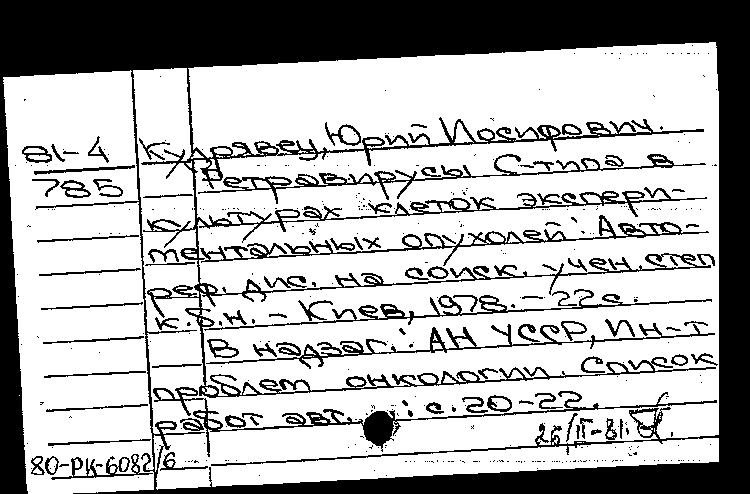 81-4
785
Кудрявец, Юрий Иосифович.
Ретровирусы С-типа в
культурах клеток экспери-
ментальных опухолей : Авто-
реф. дис. на соиск. учен. степ
к.б.н. – Киев, 1978. – 22 с.
В надзаг.: АН УССР, Ин-т
проблем онкологии. Список
работ авт. : с. 20-22.
26/II-81.
80-РК-6082/6